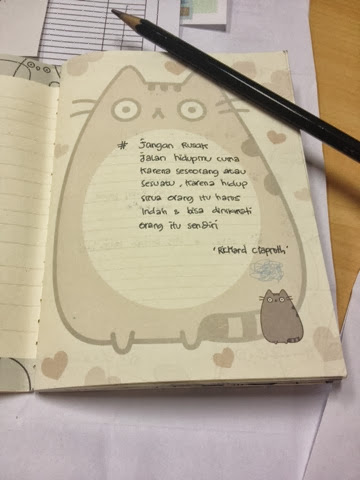 # Jangan Rusak
Jalan hidupmu cuma
karena seseorang atau
sesuatu, karena hidup
semua orang itu harus
indah & bisa dinikmati
orang itu sendiri
'Richard Claproth'